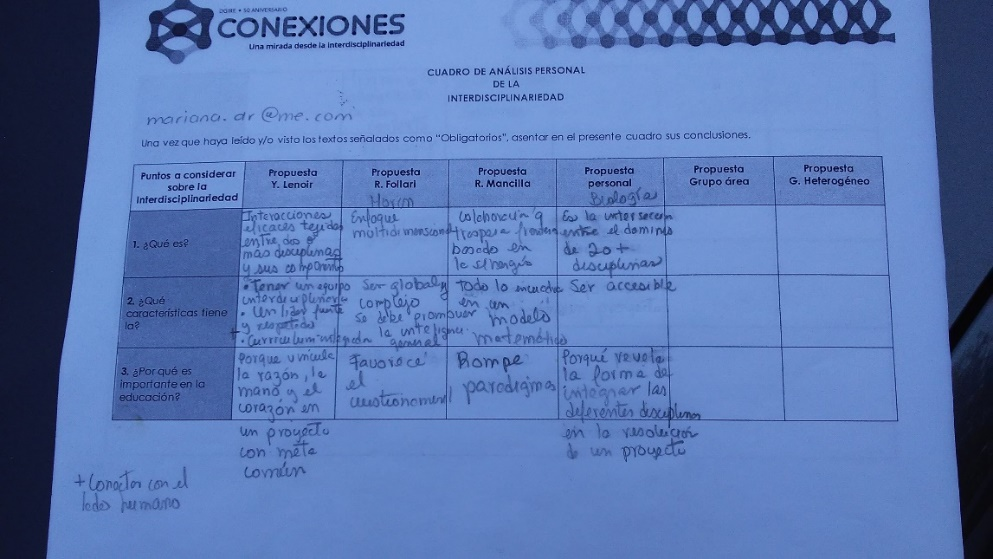 DGIRE • 50 ANIVERSARIO
CONEXIONES
Una mirada desde la interdisciplinariedad
CUADRO DE ANÁLISIS PERSONAL
DE LA
INTERDISCIPLINARIEDAD
mariana.dr@me.com
Una vez que haya leído y/o visto los textos señalados como "Obligatorios", asentar en el presente cuadro sus conclusiones.
Puntos a considerar
sobre la
Interdisciplinariedad
Propuesta
Y. Lenoir
Propuesta
R. Follari
Morin
Propuesta
R. Mancilla
Propuesta
personal
Biología
Propuesta
Grupo área
Propuesta
G. Heterogéneo
1. ¿Qué es?
Interacciones
eficaces tejidas
entre dos o
más disciplinas
y sus componentes
Enfoque
multidimensional
Colaboración q
traspasa fronteras
basado en
la sinergia
Es la intersección
entre el dominio
de 2 o +
disciplinas
2. ¿Qué
características tiene
la?
• Tener un equipo
interdisciplinario
• Un líder fuerte
y respetado
+ • Curriculum integrado
Ser global y
complejo
se debe promover
la inteligencia
general
Todo lo encuadra
en un
modelo
matemático
Ser accesible
3. ¿Por qué es
importante en la
educación?
Porque vincula
la razón, la
mano y el
corazón en
un proyecto
con meta
común
Favorece
el
cuestionamiento
Rompe
paradigmas
Porqué revela
la forma de
integrar las
diferentes disciplinas
en la resolución
de un proyecto
+ Conectar con el
lado humano